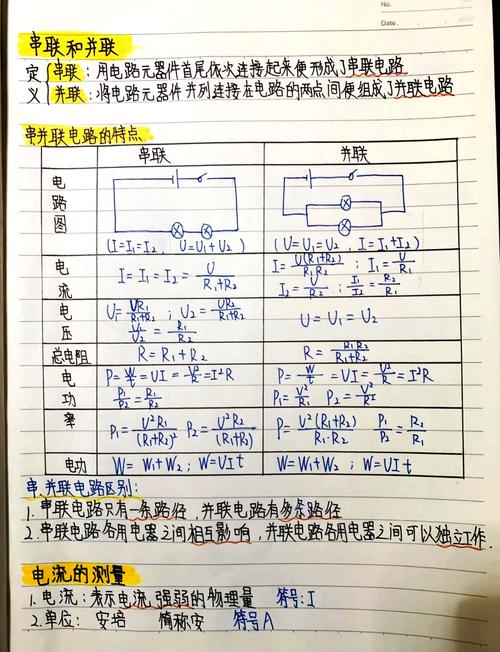 No.
Date.
串联和并联
定 串联：用电路元器件首尾依次连接起来便形成了串联电路
义 并联：将电路元器件并列连接在电路的两点间便组成了并联电路
串并联电路的特点
串联 并联
电路图
(I=I₁=I₂, U=U₁+U₂) (U=U₁=U₂, I=I₁+I₂)
电流 I=I₁=I₂=U/(R₁+R₂) I=U(R₁+R₂)/(R₁R₂); I₁=U/R₁
I₂=U/R₂; I₁/I₂=R₂/R₁
电压 U₁=UR₁/(R₁+R₂); U₂=UR₂/(R₁+R₂) U=U₁=U₂
U₁/U₂=R₁/R₂
总电阻 R=R₁+R₂ R=R₁R₂/(R₁+R₂)
电功率 P=W/t=UI=V²/R=I²R P=W/t=UI=U²/R=I²R
P₁/P₂=R₁/R₂ P₁=V²/R₁ P₂=V²/R₂
P₁=U²R₁/(R₁+R₂)² P₂=U²R₂/(R₁+R₂) P=U²(R₁+R₂)/(R₁·R₂) P₁/P₂=R₂/R₁
电功 W=W₁+W₂; W=UIt W=W₁+W₂; W=UIt
串、并联电路区别：
1.串联电路只有一条路径，并联电路有多条路径
2.串联电路各用电器之间相互影响，并联电路各用电器之间可以独立工作.
电流的测量
1.电流：表示电流强弱的物理量 符号：I
2.单位：安培 简称安 符号A